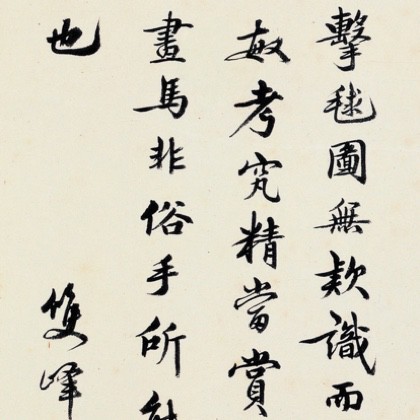 擊毬圖無款識而
敏考究精當賞
畫馬非俗手所
也
雙峰